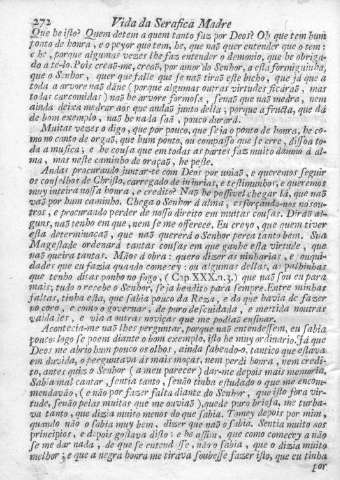 272 Vida da Serafica Madre
Que he isto? Quem detem a quem tanto faz por Deos? Oh que tem hum
ponto de honra, e o peyor que tem, he, que naõ quer entender que o tem:
e he, porque algumas vezes lhe faz entender o demonio, que he obriga-
do a te-lo. Pois creaõ-me, creaõ, por amor do Senhor, a esta formiguinha,
que o Senhor, quer que falle que se naõ tiraõ este bicho, que já que a
toda a arvore naõ dãne (porque algumas outras virtudes ficaráõ, mas
todas carcomidas) naõ he arvore formosa, senaõ que naõ medra, nem
ainda deixa medrar aos que andaõ junto della; porque a fruita, que dá
de bom exemplo, naõ he nada saã, pouco durará.
Muitas vezes o digo, que por pouco, que seja o ponto de honra, he co-
mo no canto de orgaõ, que hum ponto, ou compasso que se erre, dissoa to-
da a musica, e he cousa que em todas as partes faz muito damno á al-
ma, mas neste caminho de oraçaõ, he peste.
Andas procurando juntar-te com Deos por uniaõ, e queremos seguir
os conselhos de Christo, carregado de injurias, e testimunhos, e queremos
muy inteira nossa honra, e credito? Naõ he possivel chegar lá, que naõ
vaõ por hum caminho. Chega o Senhor á alma, esforçando-nos nós ou-
tros, e procurando perder de nosso direito em muitas cousas. Diraõ al-
guns, naõ tenho em que, nem se me offerece. Eu creyo, que quem tiver
esta determinaçaõ, que naõ quererá o Senhor perca tanto bem. Sua
Magestade ordenará tantas cousas em que ganhe esta virtude, que
naõ queira tantas. Mãos á obra: quero dizer as ninharias, e pouqui-
dades que eu fazia quando comecey: ou algumas dellas, as palhinhas
que tenho ditas ponho no fogo, (Cap. XXX. n. 3.) que naõ sou eu para
mais; tudo o recebe o Senhor, seja bendito para sempre. Entre minhas
faltas, tinha esta, que sabia pouco da Reza, e do que havia de fazer
no coro, e como o governar, de puro descuidada, e mettida noutras
vaidades, e via a outras noviças que me podiaõ ensinar.
Acontecia-me naõ lhes perguntar, porque naõ entendessem, eu sabia
pouco: logo se poem diante o bom exemplo, isto he muy ordinario. Já que
Deos me abrio hum pouco os olhos, ainda sabendo-o, tantico que estava
em duvida, o perguntava ás mais moças, nem perdi honra, nem credi-
to, antes quiz o Senhor (a meu parecer) dar-me depois mais memoria.
Sabia mal cantar, sentia tanto, se naõ tinha estudado o que me encom-
mendavaõ, (e naõ por fazer falta diante do Senhor, que isto fora vir-
tude, senaõ pelas muitas que me ouviaõ) que de puro briosa, me turba-
va tanto, que dizia muito menos do que sabia. Tomey depois por mim,
quando naõ o sabia muy bem, dizer que naõ o sabia. Sentia muito aos
principios, e depois gostava disto: e he assim, que como comecey a naõ
se me dar nada, de que se entendesse, naõ o sabia, que o dizia muito
melhor; e que a negra honra me tirava soubesse fazer isto, que eu tinha
por